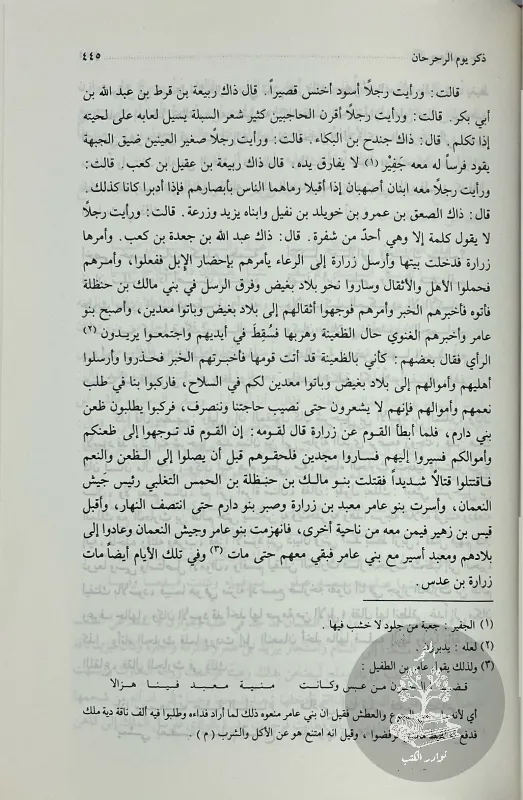 ذكر يوم الرحرحان ٤٤٥
قالت: ورأيت رجلًا أسود أخنس قصيراً. قال ذاك ربيعة بن قرط بن عبد الله بن
أبي بكر. قالت: ورأيت رجلًا أقرن الحاجبين كثير شعر السبلة يسيل لعابه على لحيته
إذا تكلم. قال: ذاك جندح بن البكاء. قالت: ورأيت رجلًا صغير العينين ضيق الجبهة
يقود فرساً له معه جَفِيْر (١) لا يفارق يده. قال ذاك ربيعة بن عقيل بن كعب. قالت:
ورأيت رجلًا معه ابنان أصهبان إذا أقبلا رماهما الناس بأبصارهم فإذا أدبرا كانا كذلك.
قال: ذاك الصعق بن عمرو بن خويلد بن نفيل وابناه يزيد وزرعة. قالت: ورأيت رجلًا
لا يقول كلمة إلا وهي أحدّ من شفرة. قال: ذاك عبد الله بن جعدة بن كعب. وأمرها
زرارة فدخلت بيتها وأرسل زرارة إلى الرعاء يأمرهم بإحضار الإبل ففعلوا، وأمرهم
فحملوا الأهل والأثقال وساروا نحو بلاد بغيض وفرق الرسل في بني مالك بن حنظلة
فأتوه فأخبرهم الخبر وأمرهم فوجهوا أثقالهم إلى بلاد بغيض وباتوا معدين، وأصبح بنو
عامر وأخبرهم الغنوي حال الظعينة وهربها فسُقِطَ في أيديهم واجتمعوا يريدون (٢)
الرأي فقال بعضهم: كأني بالظعينة قد أتت قومها فأخبرتهم الخبر فحذروا وأرسلوا
أهليهم وأموالهم إلى بلاد بغيض وباتوا معدين لكم في السلاح، فاركبوا بنا في طلب
نعمهم وأموالهم فإنهم لا يشعرون حتى نصيب حاجتنا وننصرف، فركبوا يطلبون ظعن
بني دارم، فلما أبطأ القوم عن زرارة قال لقومه: إن القوم قد توجهوا إلى ظعنكم
وأموالكم فسيروا إليهم فساروا مجدين فلحقوهم قبل أن يصلوا إلى الظعن والنعم
فاقتتلوا قتالًا شديداً فقتلت بنو مالك بن حنظلة بن الحمس التغلبي رئيس جَيش
النعمان، وأسرت بنو عامر معبد بن زرارة وصبر بنو دارم حتى انتصف النهار، وأقبل
قيس بن زهير فيمن معه من ناحية أخرى، فانهزمت بنو عامر وجيش النعمان وعادوا إلى
بلادهم ومعبد أسير مع بني عامر فبقي معهم حتى مات (٣) وفي تلك الأيام أيضاً مات
زرارة بن عدس.
(١) الجفير: جعبة من جلود لا خشب فيها.
(٢) لعله: يديرون.
(٣) ولذلك يقول عامر بن الطفيل:
من عبس وكانت منية معبد فينا هزالا
أي لأنه والعطش فقيل ان بني عامر منعوه ذلك لما أراد فداءه وطلبوا فيه ألف ناقة دية ملك
فدفع فرفضوا، وقيل انه امتنع هو عن الأكل والشرب (م).
نوادر الكتب